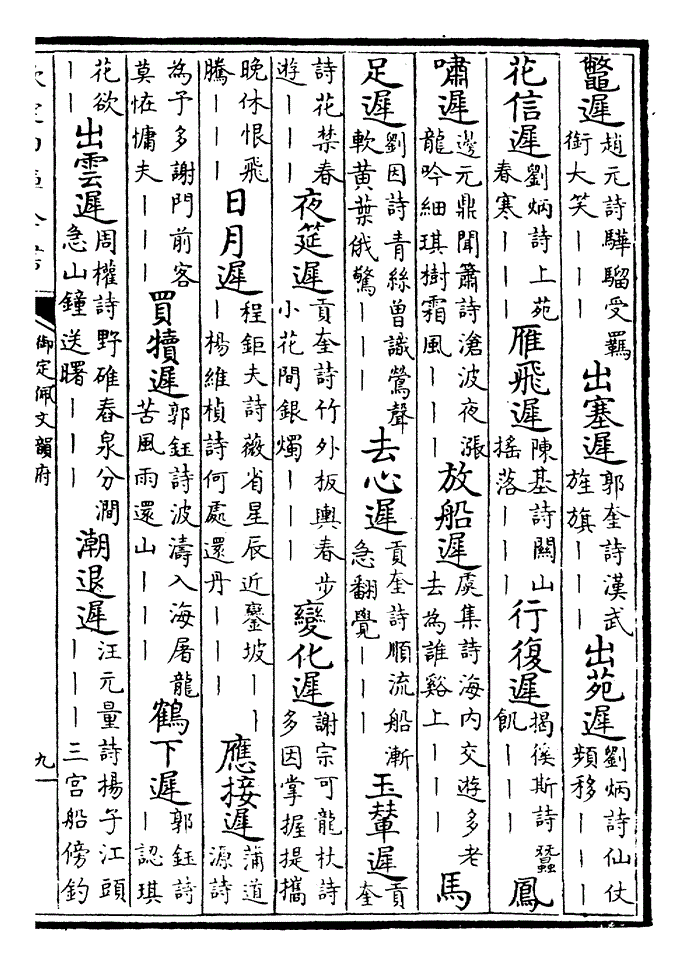 鼈遲趙元詩驊騮受羈銜大笑｜｜｜出塞遲郭奎詩漢武旌旗｜｜｜出苑遲劉炳詩仙仗頻移｜｜｜
花信遲劉炳詩上苑春寒｜｜｜雁飛遲陳基詩關山搖落｜｜｜行復遲揭傒斯詩蠶飢｜｜｜鳳
嘯遲邊元鼎聞簫詩滄波夜漲龍吟細琪樹霜風｜｜｜放船遲虞集詩海内交遊多老去為誰谿上｜｜｜馬
足遲劉因詩青絲曾識鶯聲軟黃葉俄驚｜｜｜去心遲貢奎詩順流船漸急翻覺｜｜｜玉輦遲貢奎
詩花禁春遊｜｜｜夜筵遲貢奎詩竹外板輿春步小花間銀燭｜｜｜變化遲謝宗可龍杖詩多因掌握提攜
晚休恨飛騰｜｜｜日月遲程鉅夫詩薇省星辰近鑾坡｜｜｜楊維楨詩何處還丹｜｜｜應接遲蒲道源詩
為予多謝門前客莫怪慵夫｜｜｜買犢遲郭鈺詩波濤入海屠龍苦風雨還山｜｜｜鶴下遲郭鈺詩｜認琪
花欲｜｜出雲遲周權詩野碓舂泉分澗急山鐘送曙｜｜｜潮退遲汪元量詩楊子江頭｜｜｜三宮船傍釣
御定佩文韻府
九一